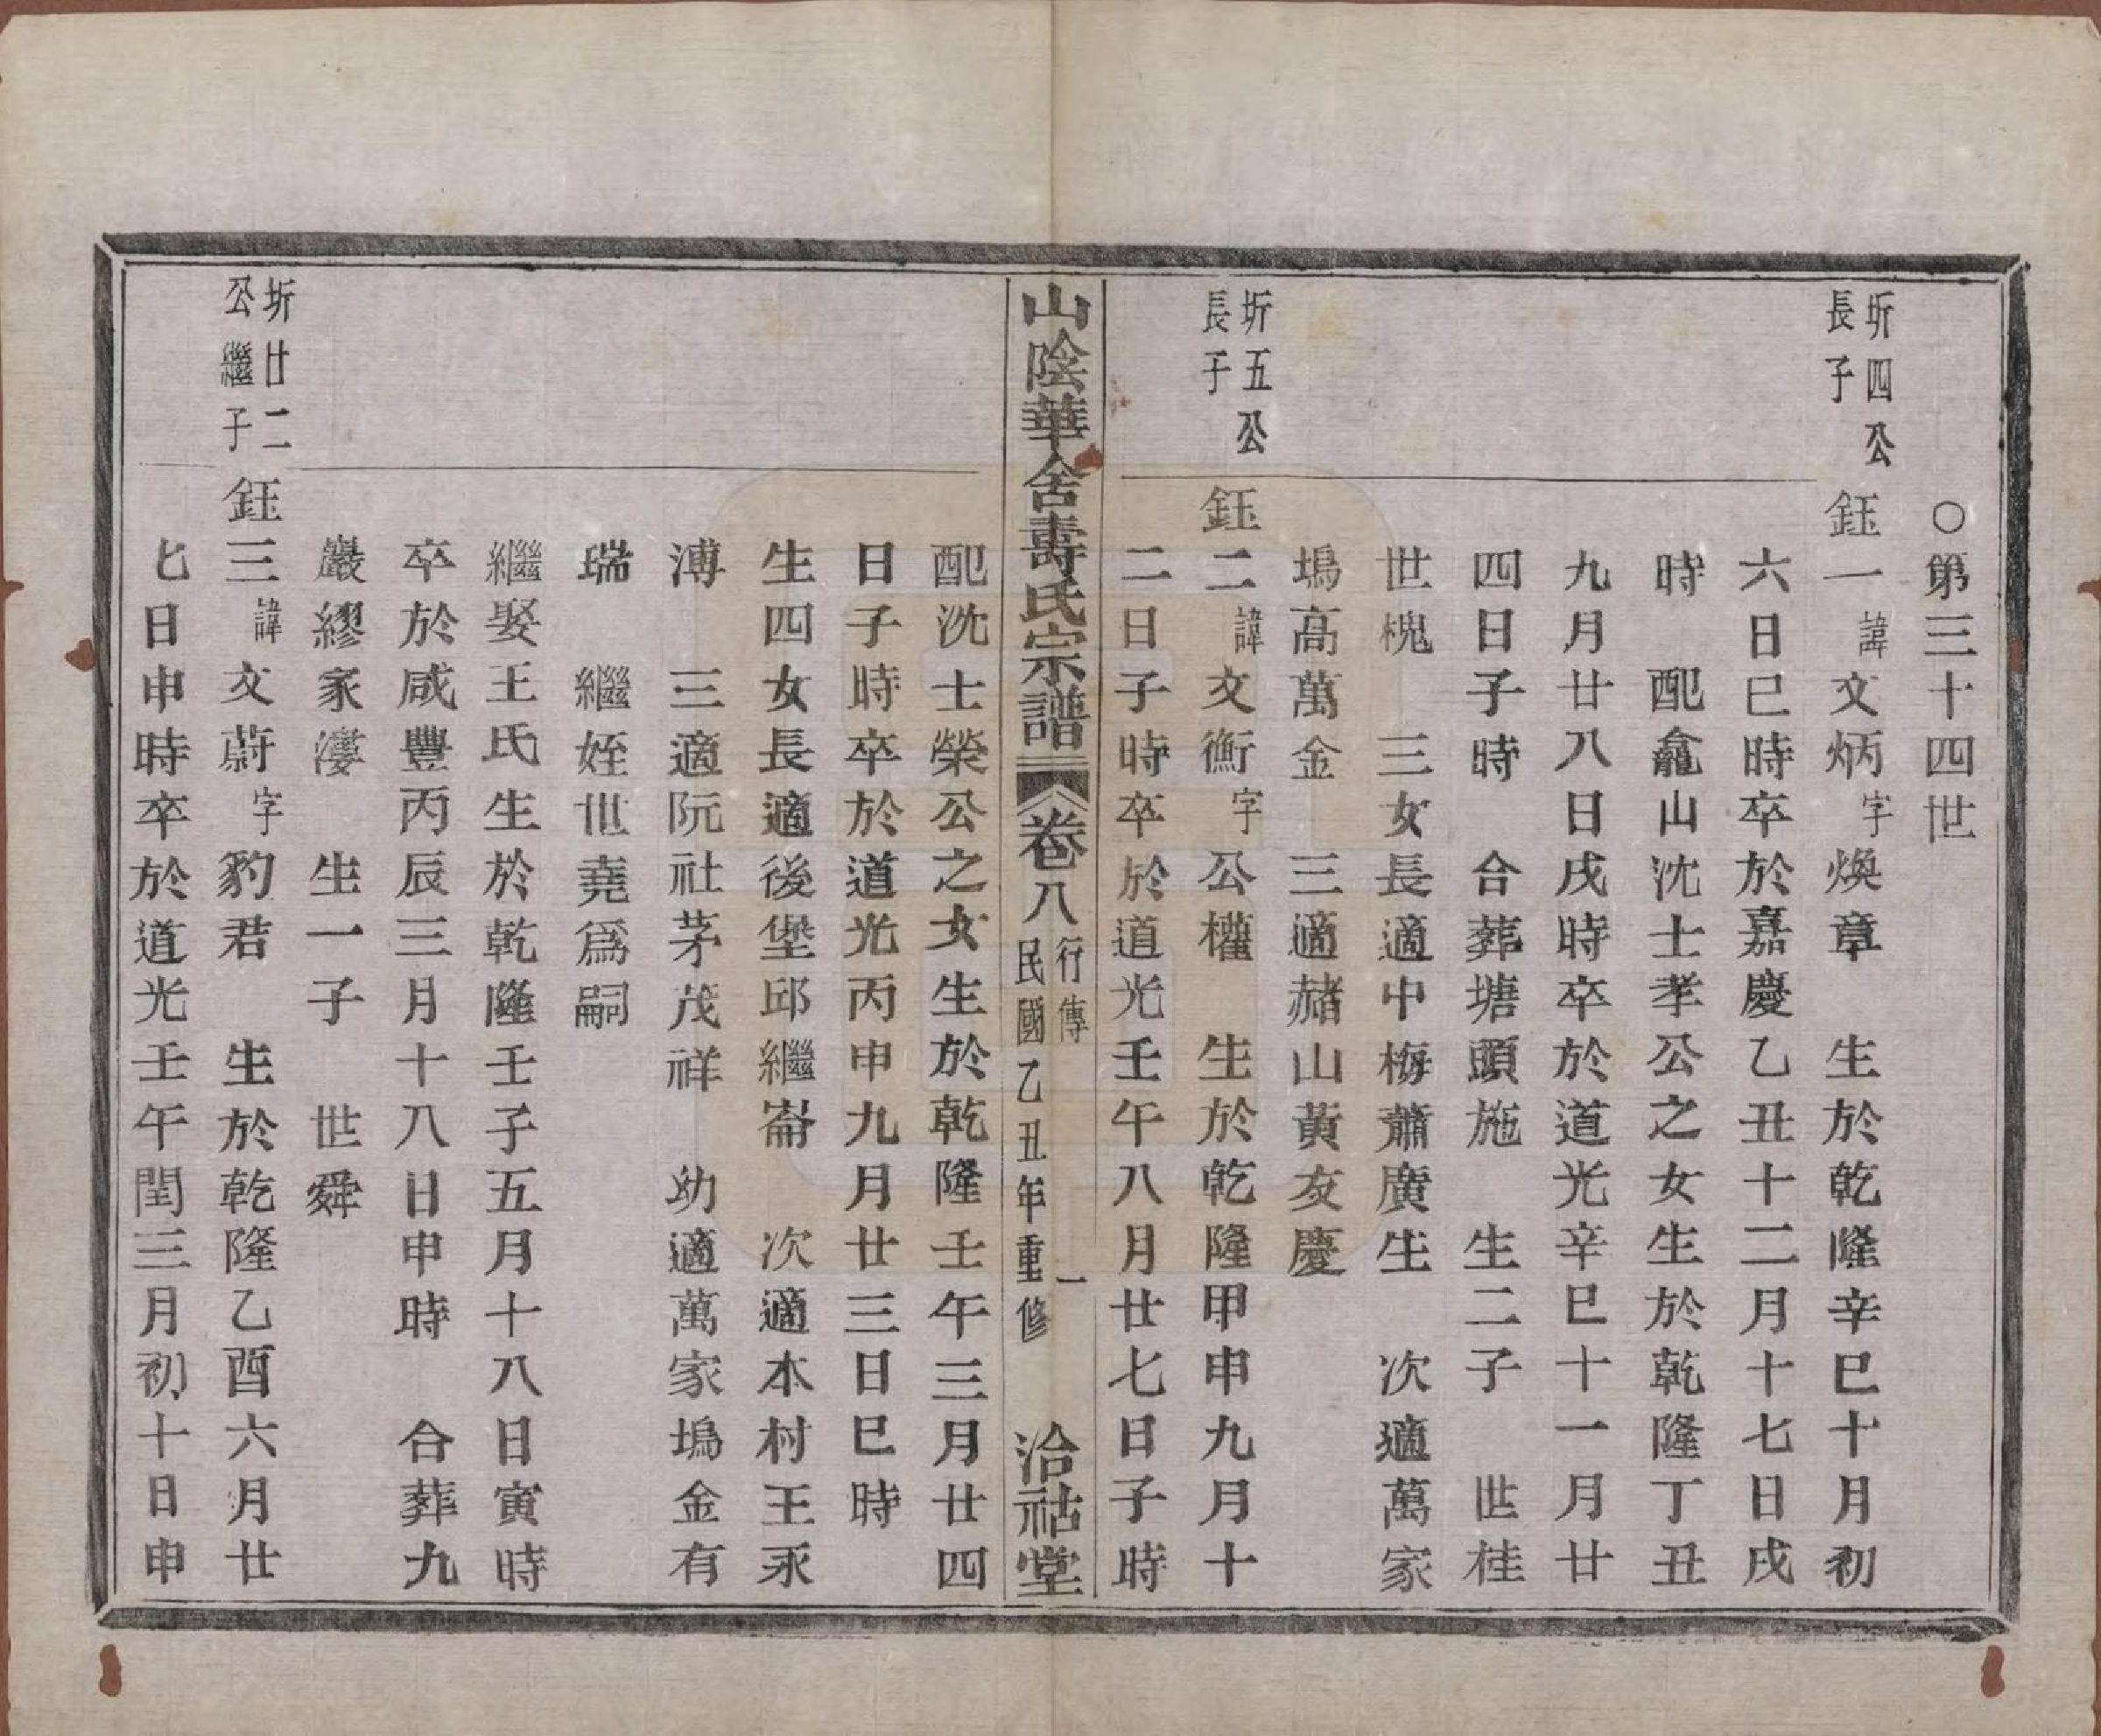 ○第三十四世
圻四公
長子
鈺一諱文炳字煥章　生於乾隆辛巳十月初
六日巳時卒於嘉慶乙丑十二月十七日戌
時　配龕山沈士孝公之女生於乾隆丁丑
九月廿八日戌時卒於道光辛巳十一月廿
四日子時　合葬塘頭施　生二子　世桂
世槐　三女長適中梅蕭廣生　次適萬家
塢高萬金　三適赭山黃友慶
圻五公
長子
鈺二諱文衡字公權　生於乾隆甲申九月十
二日子時卒於道光壬午八月廿七日子時
山陰華舍壽氏宗譜　卷八　行傳　一
民國乙丑年重修
洽祜堂
配沈士榮公之女生於乾隆壬午三月廿四
日子時卒於道光丙申九月廿三日巳時
生四女長適後堡邱繼崙　次適本村王永
溥　三適阮社茅茂祥　幼適萬家塢金有
瑞　繼姪世堯爲嗣
繼娶王氏生於乾隆壬子五月十八日寅時
卒於咸豐丙辰三月十八日申時　合葬九
巖繆家漊　生一子　世舜
圻廿二
公繼子
鈺三諱文蔚字豹君　生於乾隆乙酉六月廿
七日申時卒於道光壬午閏三月初十日申